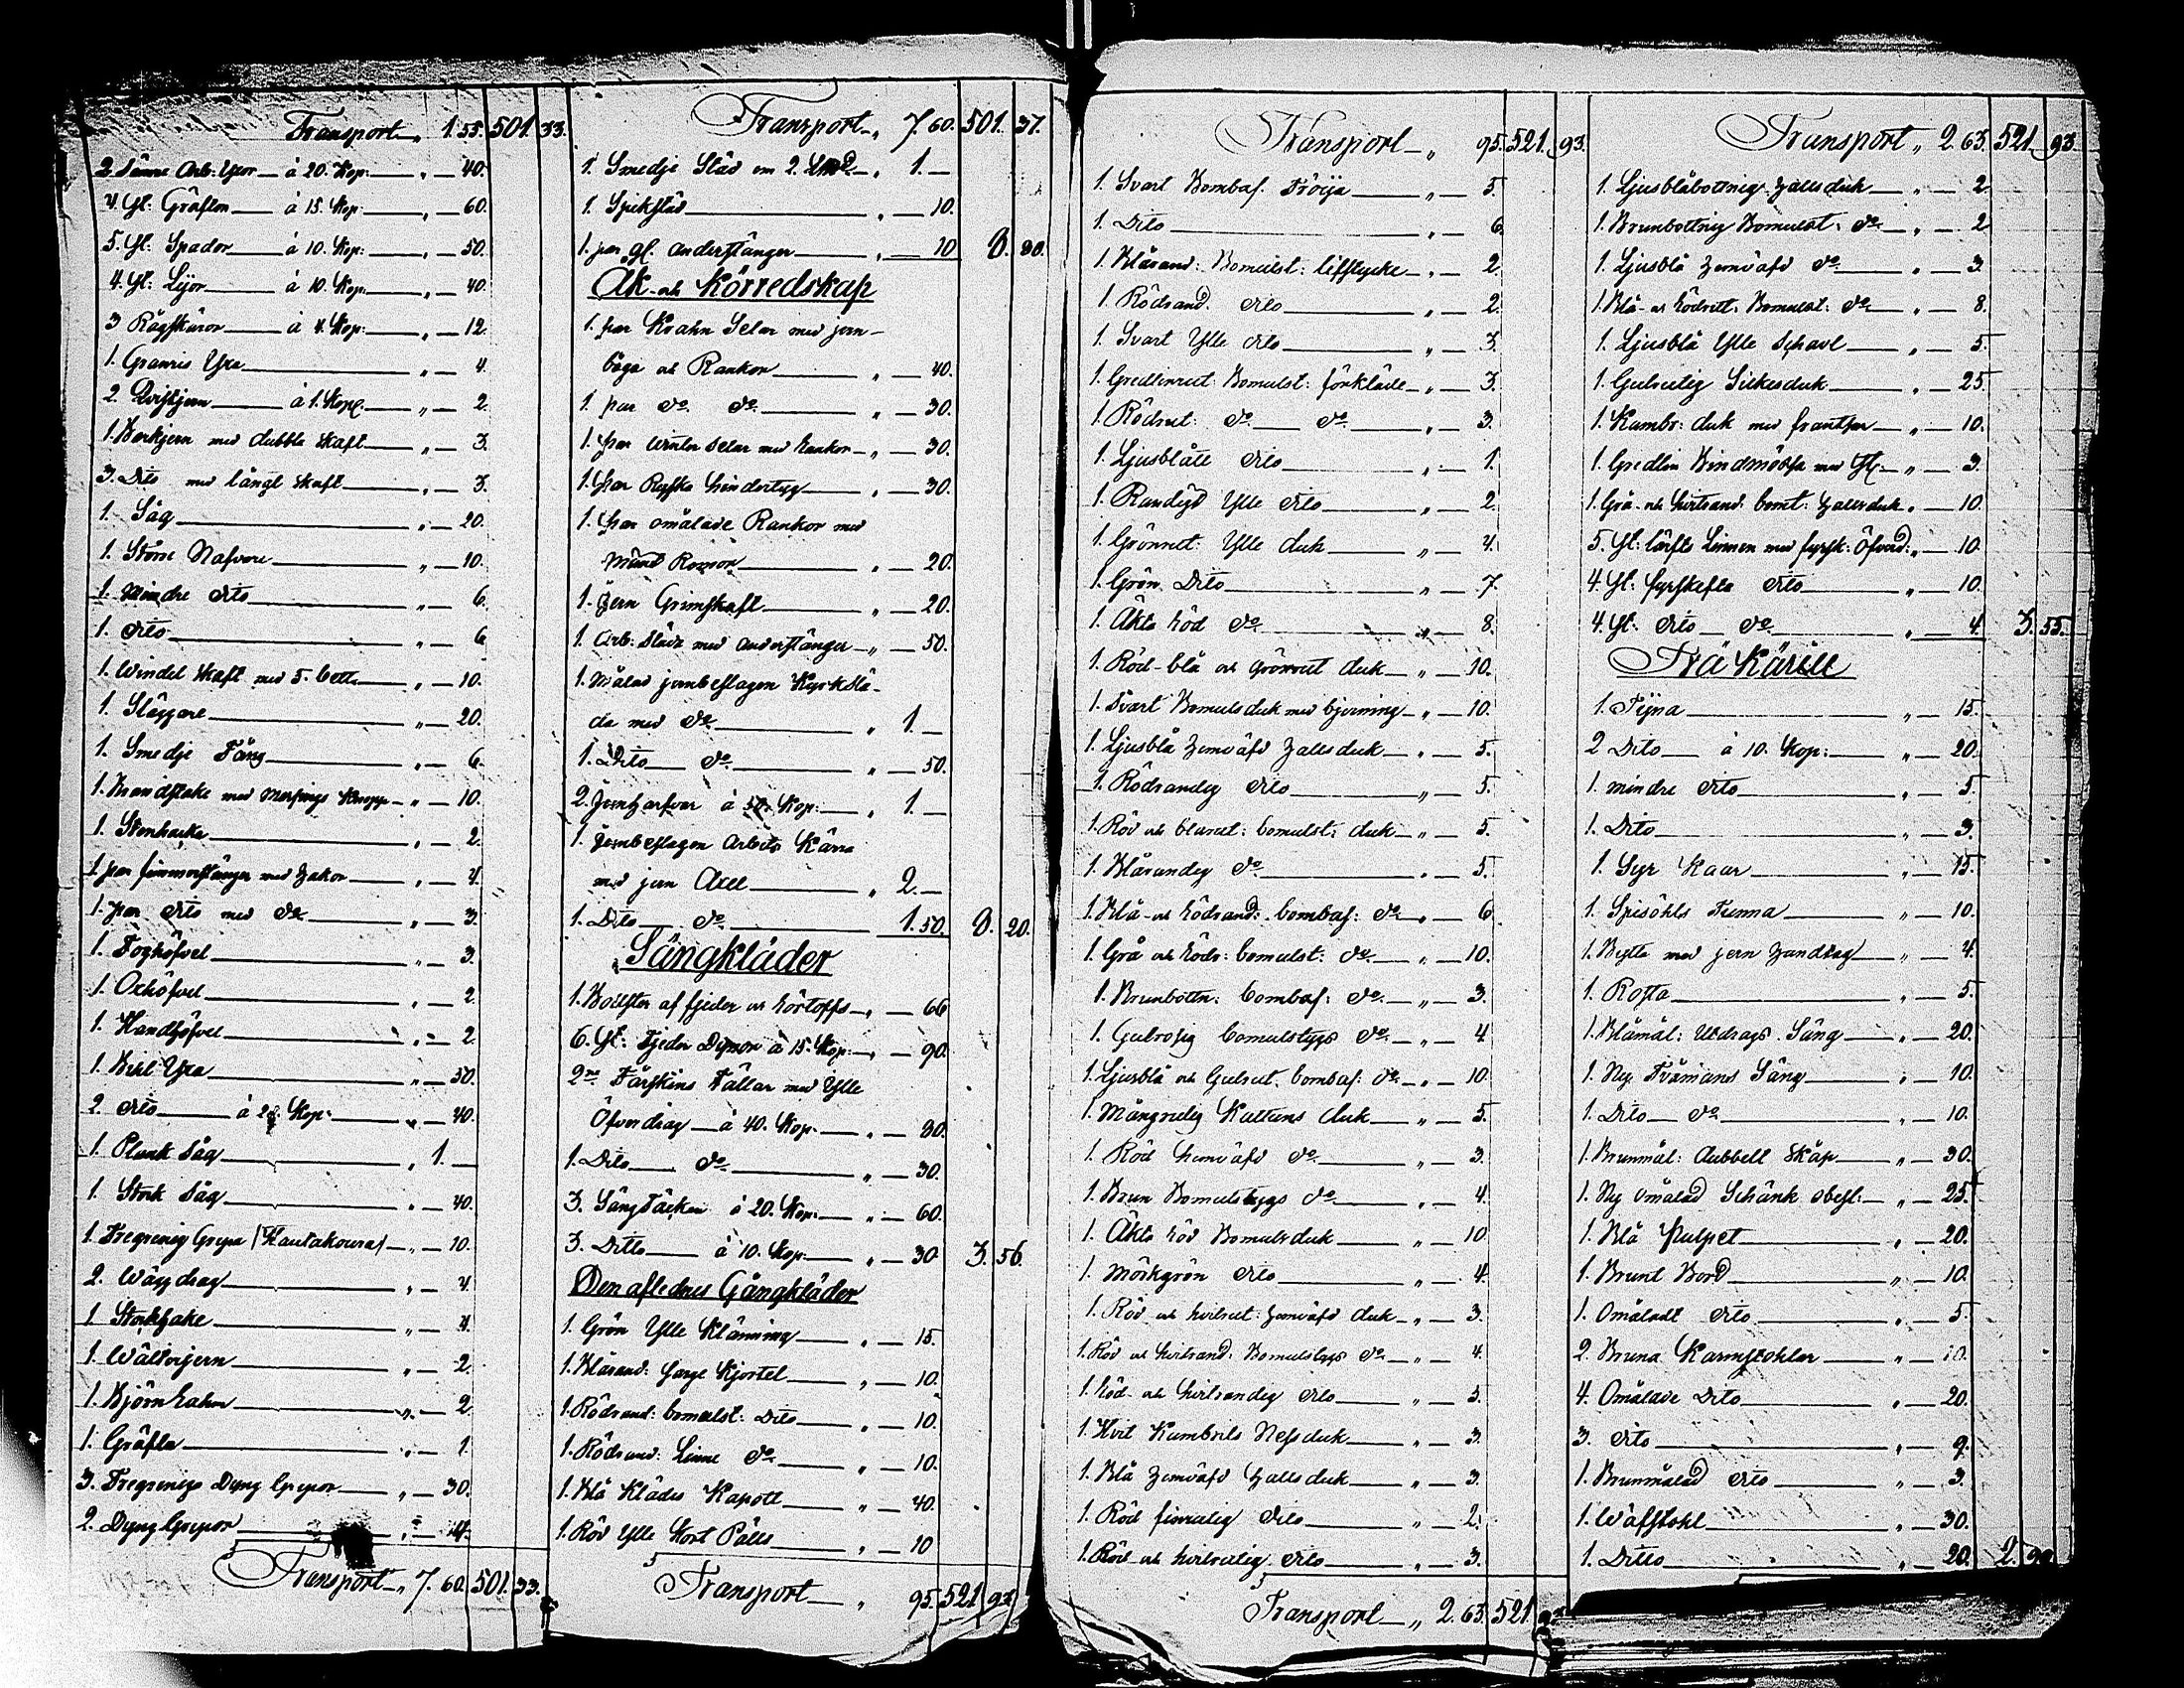 Transport „ 1.55. 501. 33.
2. sämre Arb: Yxor à 20. Kop: „ — 40.
4. Gl: Gräftor à 15. Kop: „ — 60.
5. Gl: Spador à 10. Kop: „ — 50.
4. Gl: Lijor à 10. Kop: „ — 40.
3 Rågskäror à 4. Kop: „ — 12.
1. Granris Yxa „ — 4.
2. à 1. Kop: „ — 2.
1. Barkjern med dubbla skaft „ — 3.
3. Dito med långt skaft „ — 3.
1. Såg „ — 20.
1. Större Nafvare „ — 10.
1. Mindre dito „ — 6.
1. dito „ — 6
1. Windel skaft med 5. bett „ — 10.
1. Släggare „ — 20.
1. Smedje Tång „ — 6.
1. Brandstake med Messings Knopp „ — 10.
1. Stenhacka „ — 2.
1. par timmerstänger med hakor „ — 4.
1. par dito med do „ — 3.
1. Foghöfvel „ — 3.
1. Oxhöfvel „ — 2.
1. Handhöfvel „ — 2.
1. Bihl Yxa „ — 30.
2. dito à 20. Kop: „ — 40.
1. Plank såg „ 1. —
1. Stock såg „ — 40.
1. Tregrenig Grepa /Kautakoura/ „ — 10.
2. Wäg drag „ — 4
1 Stockhake „ — 4.
1. „ — 2.
1. Björn „ — 2
1. Gräfta „ — 1.
3. Tregrenige Dyng Grepor „ — 30.
2. Dyng Grepor „ — 4.
Transport „ 7. 60. 501. 33.
Transport „ 7. 60. 501. 37.
1. Smedje Städ om 2. „ 1. —
1. Spikstäd „ — 10.
1. par gl. Anderstänger „ — 10 8. 80.
Åk- och Körredskap
1. par Krahn Selar med jern-
båga och Rankor „ — 40.
1 par do do „ — 30.
1. par Winter Selar med Rankor „ — 30.
1. par Ryska hindertyg „ — 30.
1. par omålade Rankor med
„ — 20.
1. Jern Grimskaft „ — 20.
1 Arb: släda med Anderstänger „ — 50.
1. Målad jernbeslagen Kyrkslä-
da med do „ 1. —
1. Dito do „ — 50.
2. Jernharfvar à 50. Kop: „ 1. —
1. Jernbeslagen Arbets Kärra
med jern Axel „ 2. —
1. Dito do 1. 50. 8. 20.
Sängkläder
1. Bolster af fjeder och „ — 66
6. Gl: Fjeder Dynor à 15. Kop: „ — 90.
2ne Fårskins Fällar med Ylle
Öfverdrag à 40. Kop: „ — 80.
1. Dito do „ — 30.
3. Sängtäcken à 20. Kop: „ — 60.
3. Ditto à 10. Kop: „ — 30 3. 56.
Den aflednes Gångkläder
1. Grön Ylle Klänning „ — 15.
1. Blårand: Sarge Kjortel „ — 10.
1. Rödrand: bomulst: Dito „ — 10.
1. Rödrand: Linne do „ — 10.
1. Blå Klädes Kapott „ — 40.
1. Röd Ylle Kort Päls „ — 10
Transport „ 95. 521. 93.
Transport „ 95. 521. 93.
1. Svart Bombas. Tröija „ — 5.
1. Dito „ — 6.
1. Blårand: Bomulst: lifstycke „ — 2.
1. Rödrand. dito „ — 2.
1. Svart Ylle dito „ — 3.
1. Gredlinrut: Bomulst: förkläde „ — 3.
1. Rödrut: do do „ — 3.
1. Ljusblått dito „ — 1.
1. Randigt Ylle dito „ — 2.
1. Grönrut: Ylle duk „ — 4.
1. Grön Dito „ — 7
1. Äkta röd do „ — 8.
1. Röd-blå och grönrut duk „ — 10.
1. Svart Bomulsduk med bjerning „ — 10.
1. Ljusblå hemväfd halsduk „ — 5.
1. Rödrandig dito „ — 5.
1. Röd och blårut: bomulst: duk „ — 5.
1. Blårandig do „ — 5.
1. Blå- och rödrand: bombas: do „ — 6
1. Grå och rödr: bomulst: do „ — 10.
1. Brunbottn: bombas: do „ — 3.
1. Gulrosig bomulstygs do „ — 4
1. Ljusblå och Gulrut. bombas: do „ — 10.
1. Mångrutig Kattuns duk „ — 5.
1. Röd hemväfd do „ — 3.
1. Brun Bomulstygs do „ — 4.
1. Äkta röd Bomulsduk „ — 10
1. Mörkgrön dito „ — 4.
1. Röd och hvitrut: hemväfd duk „ — 3.
1. Röd och hvitrand: Bomulstygs do „ — 4.
1. Röd- och hvitrandig dito „ — 3.
1. Hvit Kambriks Nessduk „ — 3.
1. Blå hemväfd halsduk „ — 3.
1. Röd finrutig dito „ — 2.
1. Röd- och hvitrutig dito „ — 3.
Transport „ 2. 63. 521. 93.
Transport „ 2. 63. 521. 93.
1. Ljusblåbottnig halsduk „ — 2
1. Brunbottnig Bomulst: do „ — 2
1. Ljusblå hemväfd do „ — 3.
1. Blå- och rödrut: Bomulst: do „ — 8.
1. Ljusblå Ylle Schavl „ — 5.
1. Gulrutig Silkesduk „ — 25.
1. Kambr: duk med frantsar „ — 10.
1. Gredlin Bindmössa med „ — 3.
1. Grå- och hvitrand: bomt: halsduk „ — 10.
5. Gl: lärfts Linnen med fyrsk: Öfverd: „ — 10.
4. Gl: fyrskefts dito „ — 10.
4. Gl: dito do „ — 4. 3. 55.
Trä Kärill
1. Tijna „ — 15.
2 Dito à 10. Kop: „ — 20.
1. mindre dito „ — 5.
1. Dito „ — 3.
1. Syr Kaar „ — 15.
1. Spisöhls Tunna „ — 10.
1. Bytta med jern handtag „ — 4.
1. „ — 5.
1. Blåmål: Utdrags Säng „ — 20.
1. Ny Tvåmans Säng „ — 10.
1. Dito do „ — 10.
1. Brunmål: dubbelt skåp „ — 30.
1. Ny omålad Schänk obesl: „ — 25
1. Blå Pulpet „ — 20.
1. Brunt Bord „ — 10.
1. Omåladt dito „ — 5
2. Bruna Karmstohlar „ — 10.
4. Omålade Dito „ — 20.
3. dito „ — 9.
1. Brunmålad dito „ — 3
1. Wäfstohl „ — 30.
1. Ditto „ — 20. 2.